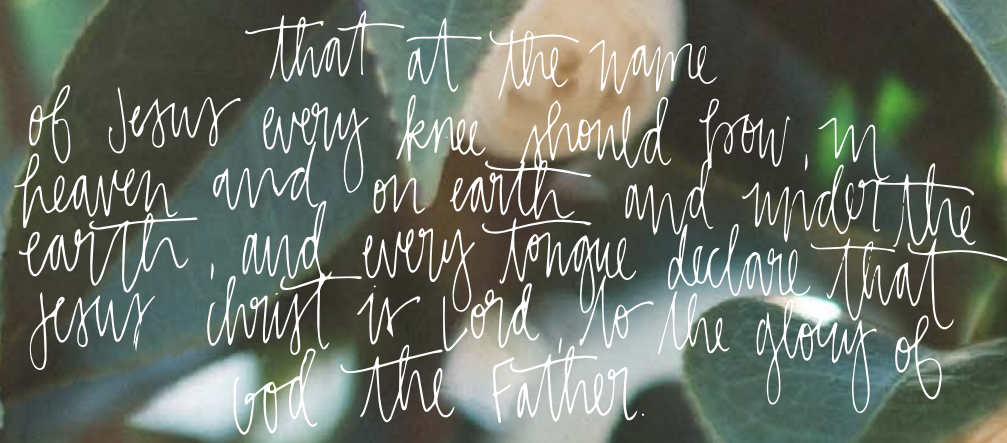 that at the name
of Jesus every knee should bow, in
heaven and on earth and under the
earth, and every tongue declare that
Jesus christ is Lord, to the glory of
God the Father.